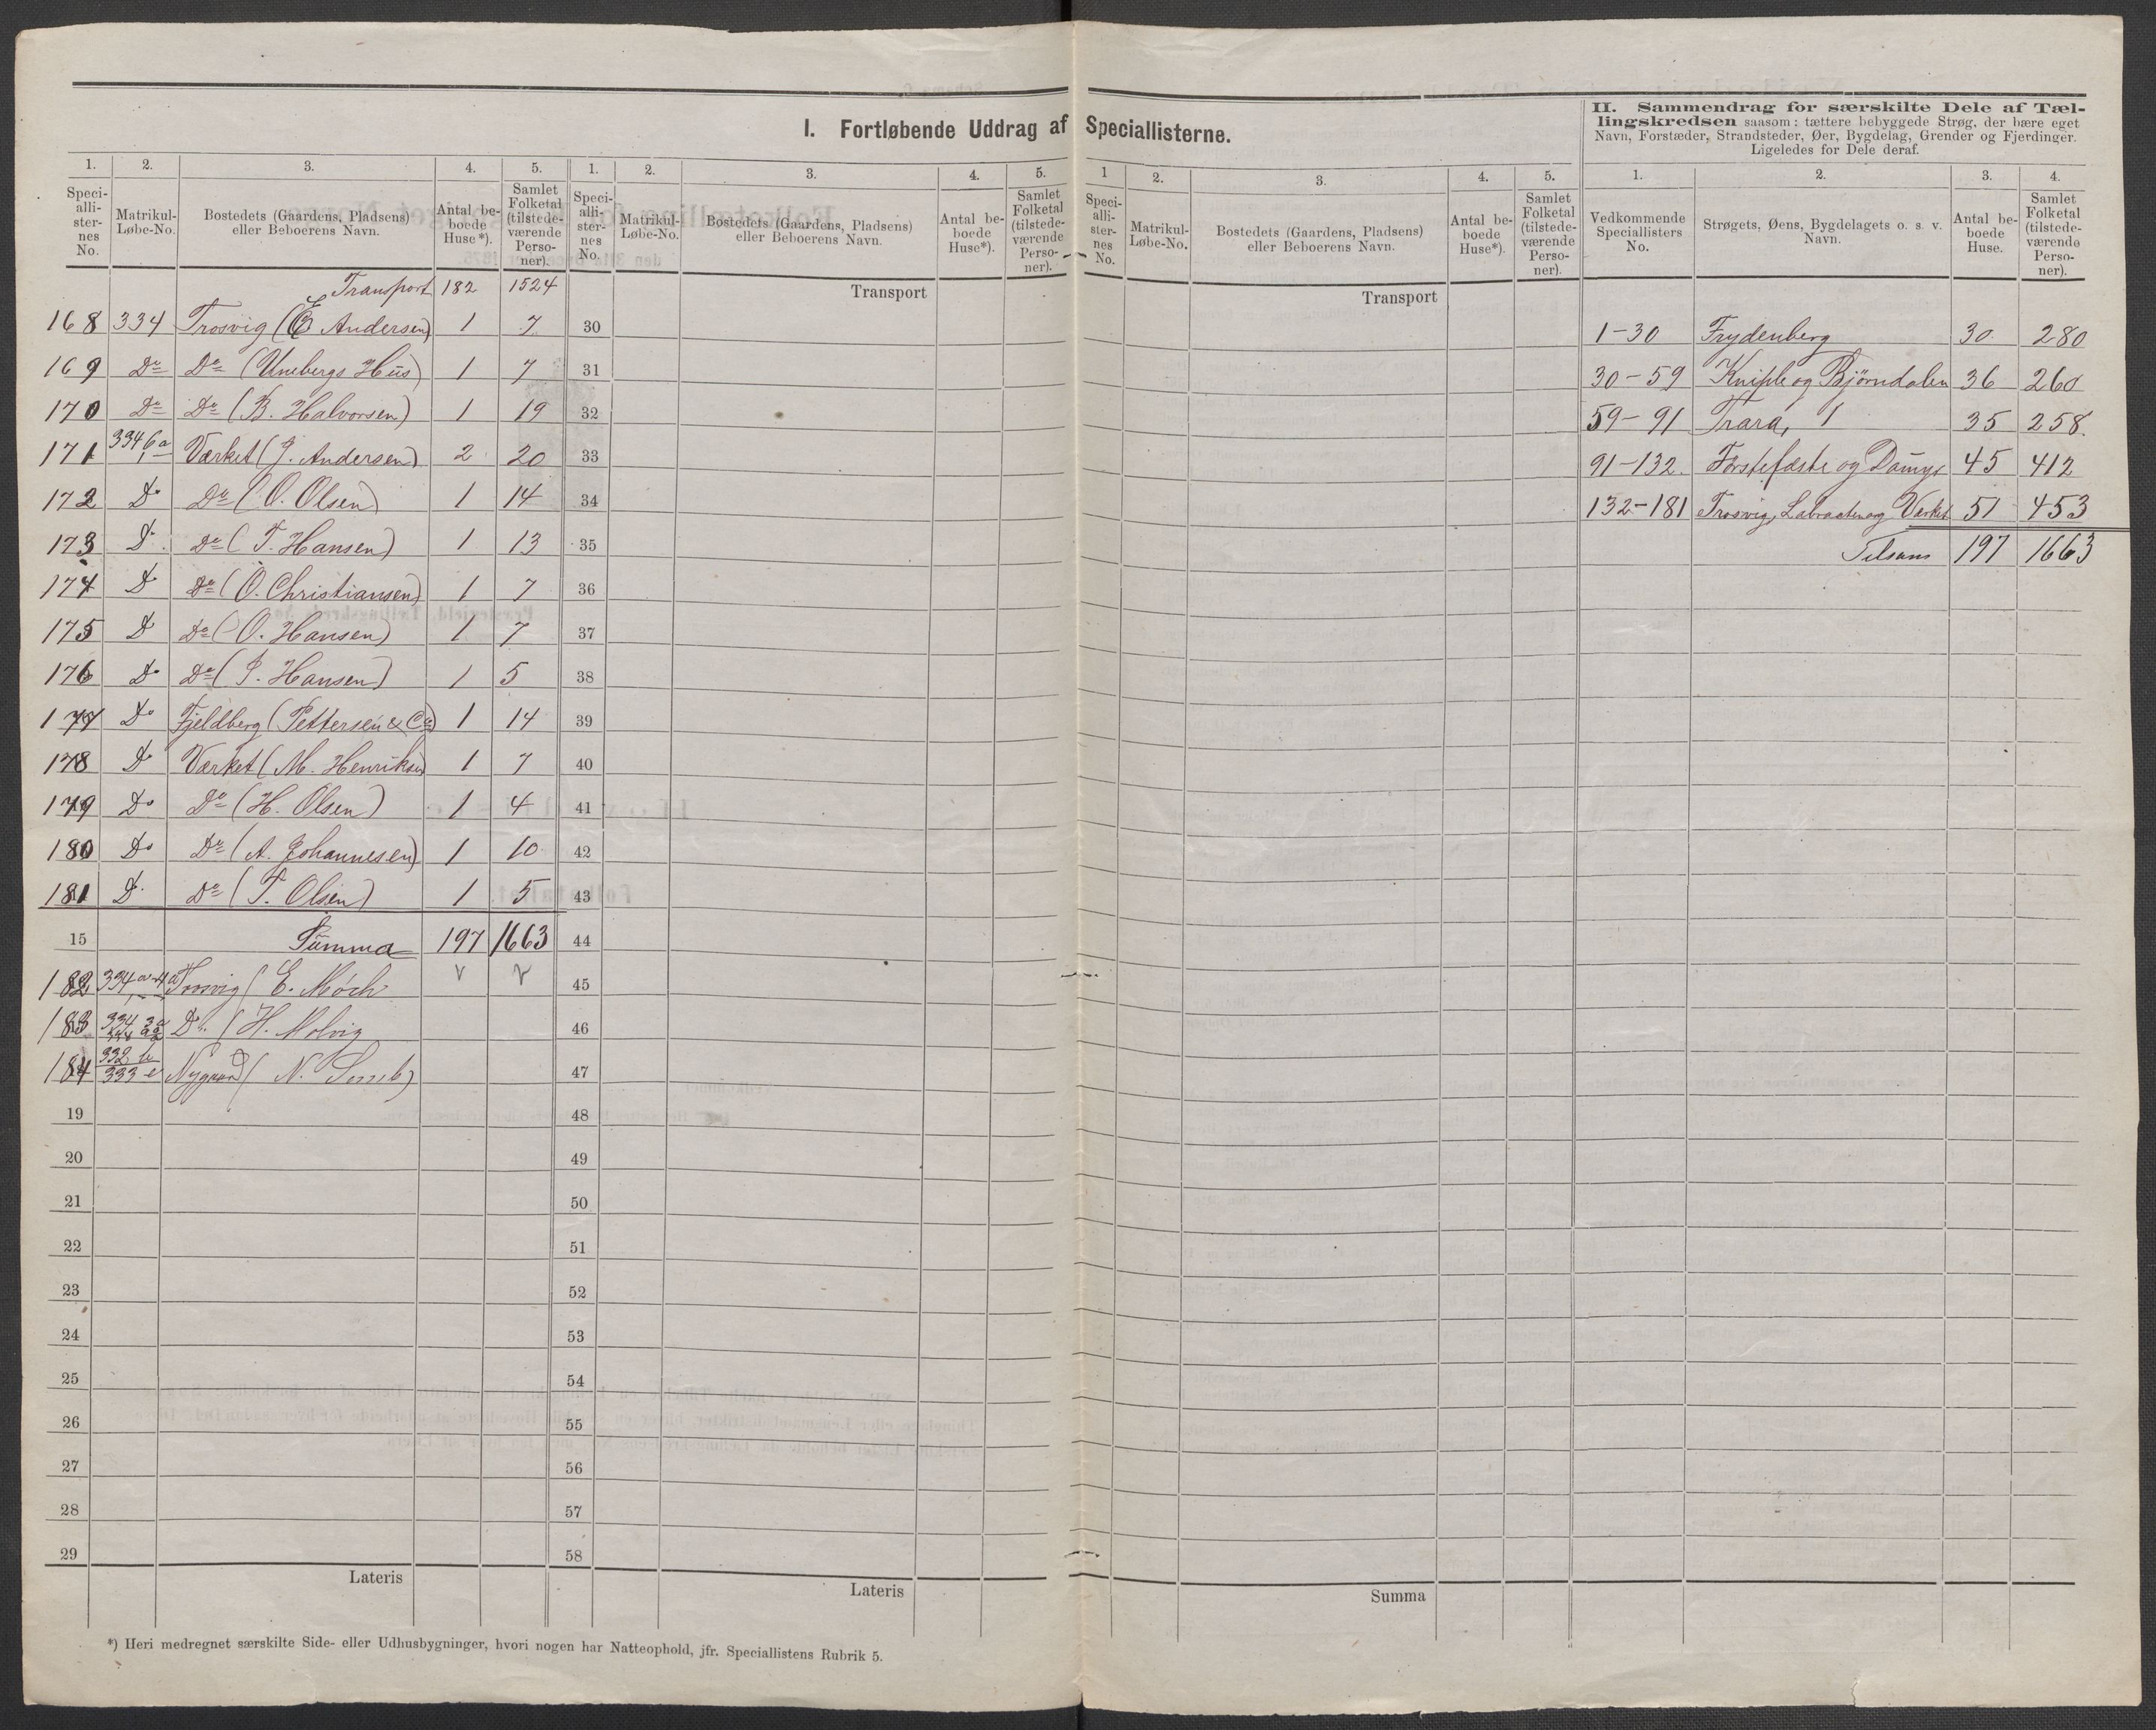 I. Fortløbende Uddrag af Speciallisterne.
1. 2. 3. 4. 5.
Speci-alli-ster-nes No. Matrikul-Løbe-No. Bostedets (Gaardens, Pladsens) eller Beboerens Navn. Antal be-boede Huse*). Samlet Folketal (tilstede-værende Perso-ner).
Transport 182 1524
168 334 Trosvig (E Andersen) 1 7
169 Do Do (Unebergs Hus) 1 7
170 Do Do (B. Halvorsen) 1 19
171 334 6a Værket (J. Andersen) 2 20
172 Do Do (O. Olsen) 1 14
173 Do Do (T. Hansen) 1 13
174 Do Do (O. Christiansen) 1 7
175 Do Do (O. Hansen) 1 7
176 Do Do (J. Hansen) 1 5
177 Do Fjeldberg (Pettersen & Co) 1 14
178 Do Værket (M. Henriksen) 1 7
179 Do Do (H. Olsen) 1 4
180 Do Do (A. Johannesen) 1 10
181 Do Do (T. Olsen) 1 5
15 Summa 197 1663
182 334 Trosvig (E. Móch
183 334 Do (H. Molvig
184 332 b 333 e Nygaard (N.
19
20
21
22
23
24
25
26
27
28
29
Lateris
*) Heri medregnet særskilte Side- eller Udhusbygninger, hvori nogen har Natteophold, jfr. Speciallistens Rubrik 5.
1. 2. 3. 4. 5.
Speci-alli-ster-nes No. Matrikul-Løbe-No. Bostedets (Gaardens, Pladsens) eller Beboerens Navn. Antal be-boede Huse*). Samlet Folketal (tilstede-værende Perso-ner).
Transport
30
31
32
33
34
35
36
37
38
39
40
41
42
43
44
45
46
47
48
49
50
51
52
53
54
55
56
57
58
Lateris
1 2. 3. 4. 5.
Speci-alli-ster-nes No. Matrikul-Løbe-No. Bostedets (Gaardens, Pladsens) eller Beboerens Navn. Antal be-boede Huse*). Samlet Folketal (tilstede-værende Perso-ner).
Transport
Summa
II. Sammendrag for særskilte Dele af Tæl-
lingskredsen saasom: tættere bebyggede Strøg, der bære eget
Navn, Forstæder, Strandsteder, Øer, Bygdelag, Grender og Fjerdinger.
Ligeledes for Dele deraf.
1. 2. 3. 4.
Vedkommende Speciallisters No. Strøgets, Øens, Bygdelagets o. s. v. Navn. Antal be-boede Huse. Samlet Folketal (tilstede-værende Perso-ner).
1-30 Frydenberg 30 280
30-59 Kniple og Bjørndalen 36 260
59-91 Trara, 35 258
91-132 Forstefæste og Damyr 45 412
132-181 Trosvig, Labraaten og Værket 51 453
Tilsams 197 1663